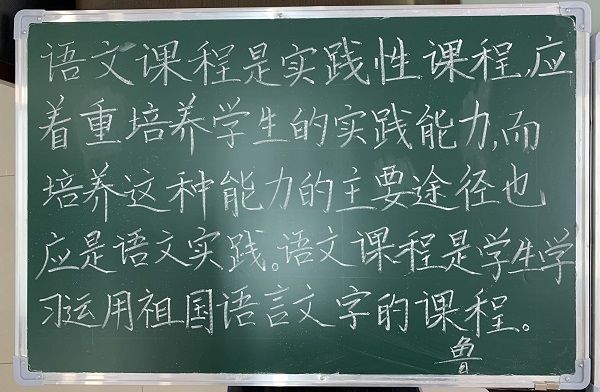 语文课程是实践性课程,应
着重培养学生的实践能力,而
培养这种能力的主要途径也
应是语文实践。语文课程是学生学
习运用祖国语言文字的课程。
鲁